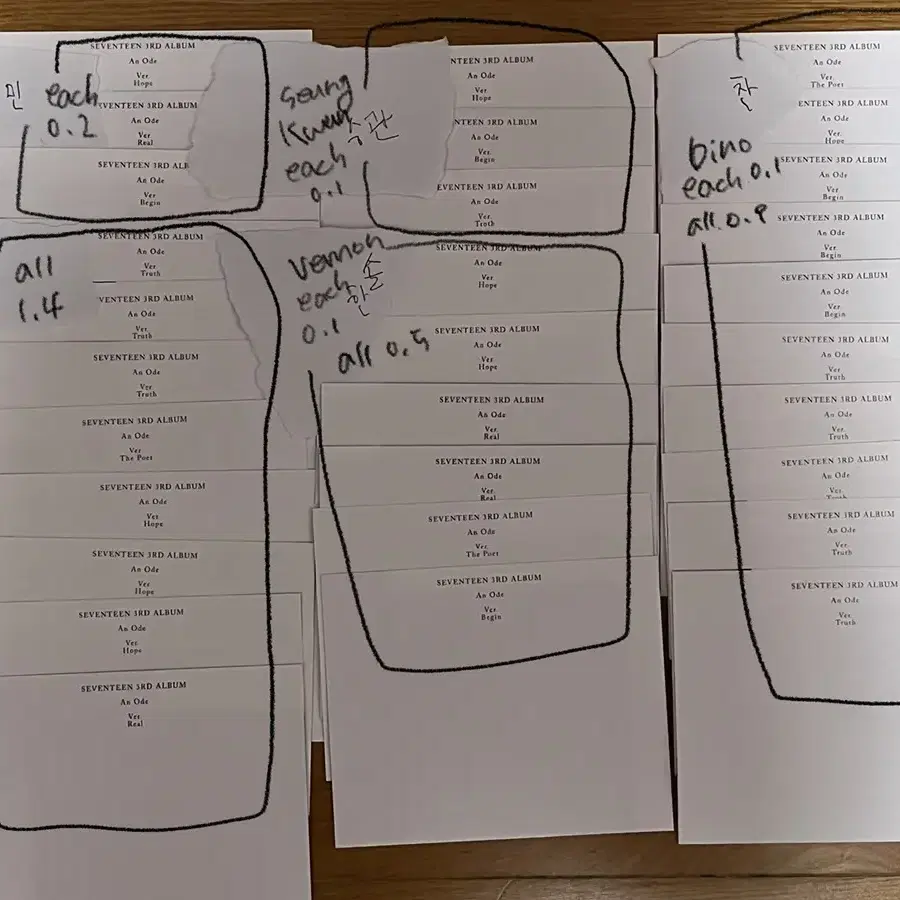 민
each
0.2
SEVENTEEN 3RD ALBUM
An Ode
Ver.
Hope
SEVENTEEN 3RD ALBUM
An Ode
Ver.
Real
SEVENTEEN 3RD ALB
An Ode
Ver.
Begin
all
1.4
SEVENTEEN 3RD ALBUM
An Ode
Ver.
Truth
VENTEEN 3RD ALBUM
An Ode
Ver.
Truth
SEVENTEEN 3RD ALBUM
An Ode
Ver.
Truth
SEVENTEEN 3RD ALBUM
An Ode
Ver.
The Poet
SEVENTEEN 3RD ALBUM
An Ode
Ver.
Hope
SEVENTEEN 3RD ALBUM
An Ode
Ver.
Hope
SEVENTEEN 3RD ALBUM
An Ode
Ver.
Hope
SEVENTEEN 3RD ALBUM
An Ode
Ver.
Real
Seung
Kwan 승관
each
0.1
ENTEEN 3RD ALBUM
An Ode
Ver.
Hope
ENTEEN 3RD ALBUM
An Ode
Ver.
Begin
EVENTEEN 3RD ALBUM
An Ode
Ver.
Truth
Vernon
each 한솔
0.1
all 0.5
SEVENTEEN 3RD ALBUM
An Ode
Ver.
Hope
SEVENTEEN 3RD ALBUM
An Ode
Ver.
Hope
SEVENTEEN 3RD ALBUM
An Ode
Ver.
Real
SEVENTEEN 3RD ALBUM
An Ode
Ver.
Real
SEVENTEEN 3RD ALBUM
An Ode
Ver.
The Poet
SEVENTEEN 3RD ALBUM
An Ode
Ver.
Begin
찬
Dino
each 0.1
all 0.9
SEVENTEEN 3RD ALBUM
An Ode
Ver.
The Poet
ENTEEN 3RD ALBUM
An Ode
Ver.
Hope
SEVENTEEN 3RD ALBUM
An Ode
Ver.
Begin
SEVENTEEN 3RD ALBUM
An Ode
Ver.
Begin
SEVENTEEN 3RD ALBUM
An Ode
Ver.
Begin
SEVENTEEN 3RD ALBUM
An Ode
Ver.
Truth
SEVENTEEN 3RD ALBUM
An Ode
Ver.
Truth
SEVENTEEN 3RD ALBUM
An Ode
Ver.
Truth
SEVENTEEN 3RD ALBUM
An Ode
Ver.
Truth
SEVENTEEN 3RD ALBUM
An Ode
Ver.
Truth